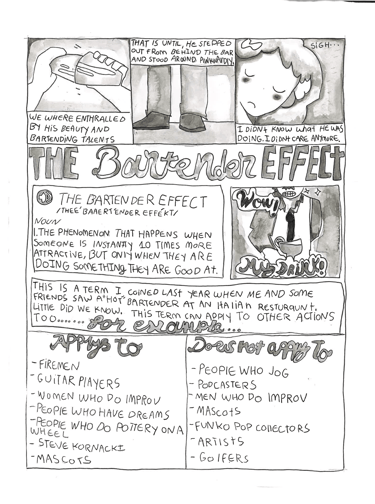 WE WHERE ENTHRALLED
BY HIS BEAUTY AND
BARTENDING TALENTS
THAT IS UNTIL, HE STEPPED
OUT FROM BEHIND THE BAR
AND STOOD AROUND AWKWARDLY.
SIGH...
I DIDNT KNOW WHAT HE WAS
DOING. I DIDNT CARE ANYMORE.
THE Bartender EFFECT
THE BARTENDER EFFECT
NOUN
1. THE PHENOMENON THAT HAPPENS WHEN
SOMEONE IS INSTANTLY 10 TIMES MORE
ATTRACTIVE, BUT ONLY WHEN THEY ARE
DOING SOMETHING THEY ARE GOOD AT.
Wow!
My DRINK!
THIS IS A TERM I COINED LAST YEAR WHEN ME AND SOME
FRIENDS SAW A "HOT" BARTENDER AT AN
LITTLE DID WE KNOW. THIS TERM CAN APPLY TO OTHER ACTIONS
TOO....... for example...
APPlys to
- FIREMEN
- GUITAR PLAYERS
- WOMEN WHO DO IMPROV
- PEOPLE WHO HAVE DREAMS
- PEOPLE WHO DO POTTERY ON A
WHEEL
- STEVE KORNACKI
- MASCOTS
Does not apply To
- PEOPLE WHO JOG
- PODCASTERS
- MEN WHO DO IMPROV
- MASCOTS
- FUNKO POP COLLECTORS
- ARTISTS
- GOLFERS